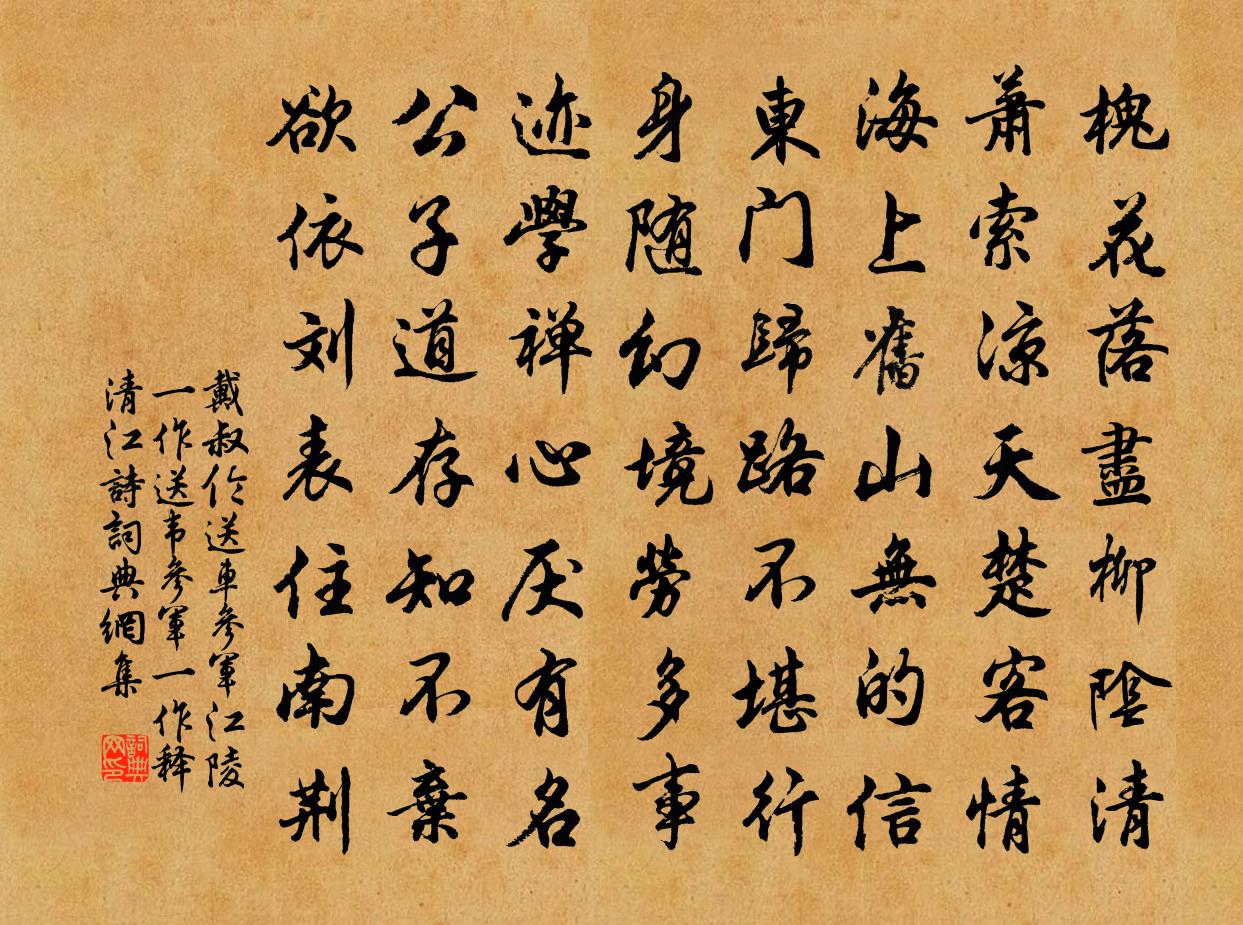 槐花落盡柳陰清
蕭索涼天楚客情
海上舊山無的信
東門歸路不堪行
身随幻境勞多事
迹學禅心厌有名
公子道存知不棄
欲依刘表住南荆
戴叔伦送車參軍江陵
一作送韦參軍一作释
清江詩詞典網集
詞典网印